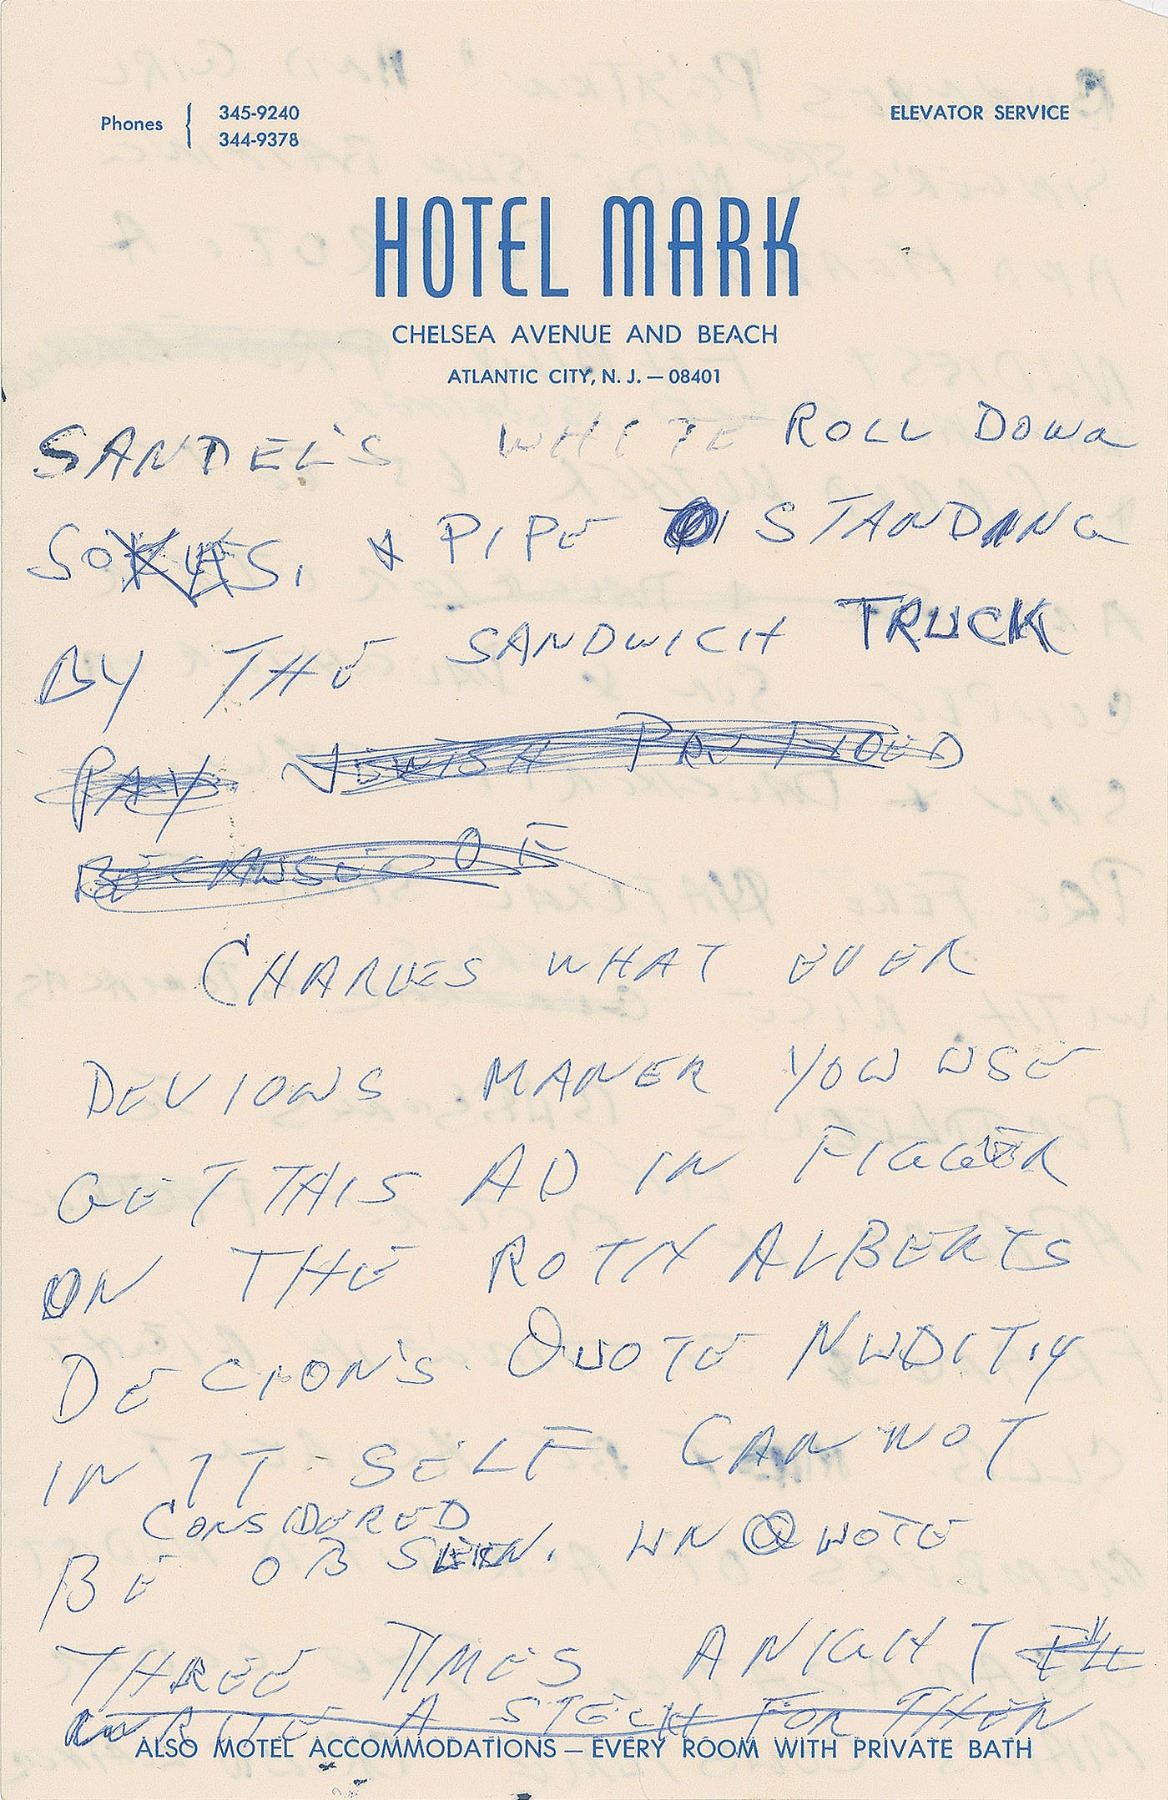 Phones { 345-9240
344-9378
ELEVATOR SERVICE
HOTEL MARK
CHELSEA AVENUE AND BEACH
ATLANTIC CITY, N. J. — 08401
SANDEL'S WHITE ROLL DOWN
PIPE STANDANG
BY THE SANDWICH TRUCK
PAY JEWISH
BECAUSE OF
CHARLES WHAT EVER
DEVIOUS MANER YOU USE
GET THIS AD IN FIGGER
ON THE ROTH ALBERTS
DECION'S QUOTE NUDITIY
IN IT SELF CAN NOT
CONSIDERED
BE OB SEEN. UN QUOTE
THREE TIMES A NIGHT
A FOR THEN
ALSO MOTEL ACCOMMODATIONS — EVERY ROOM WITH PRIVATE BATH